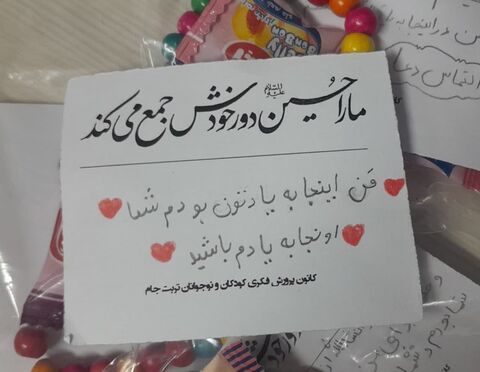 ما را حسین علیه السلام دور خودش جمع می کند
من اینجا به یادتون بودم شما
اونجا به یادم باشید
کانون پرورش فکری کودکان و نوجوانان تربت جام
التماس دعا